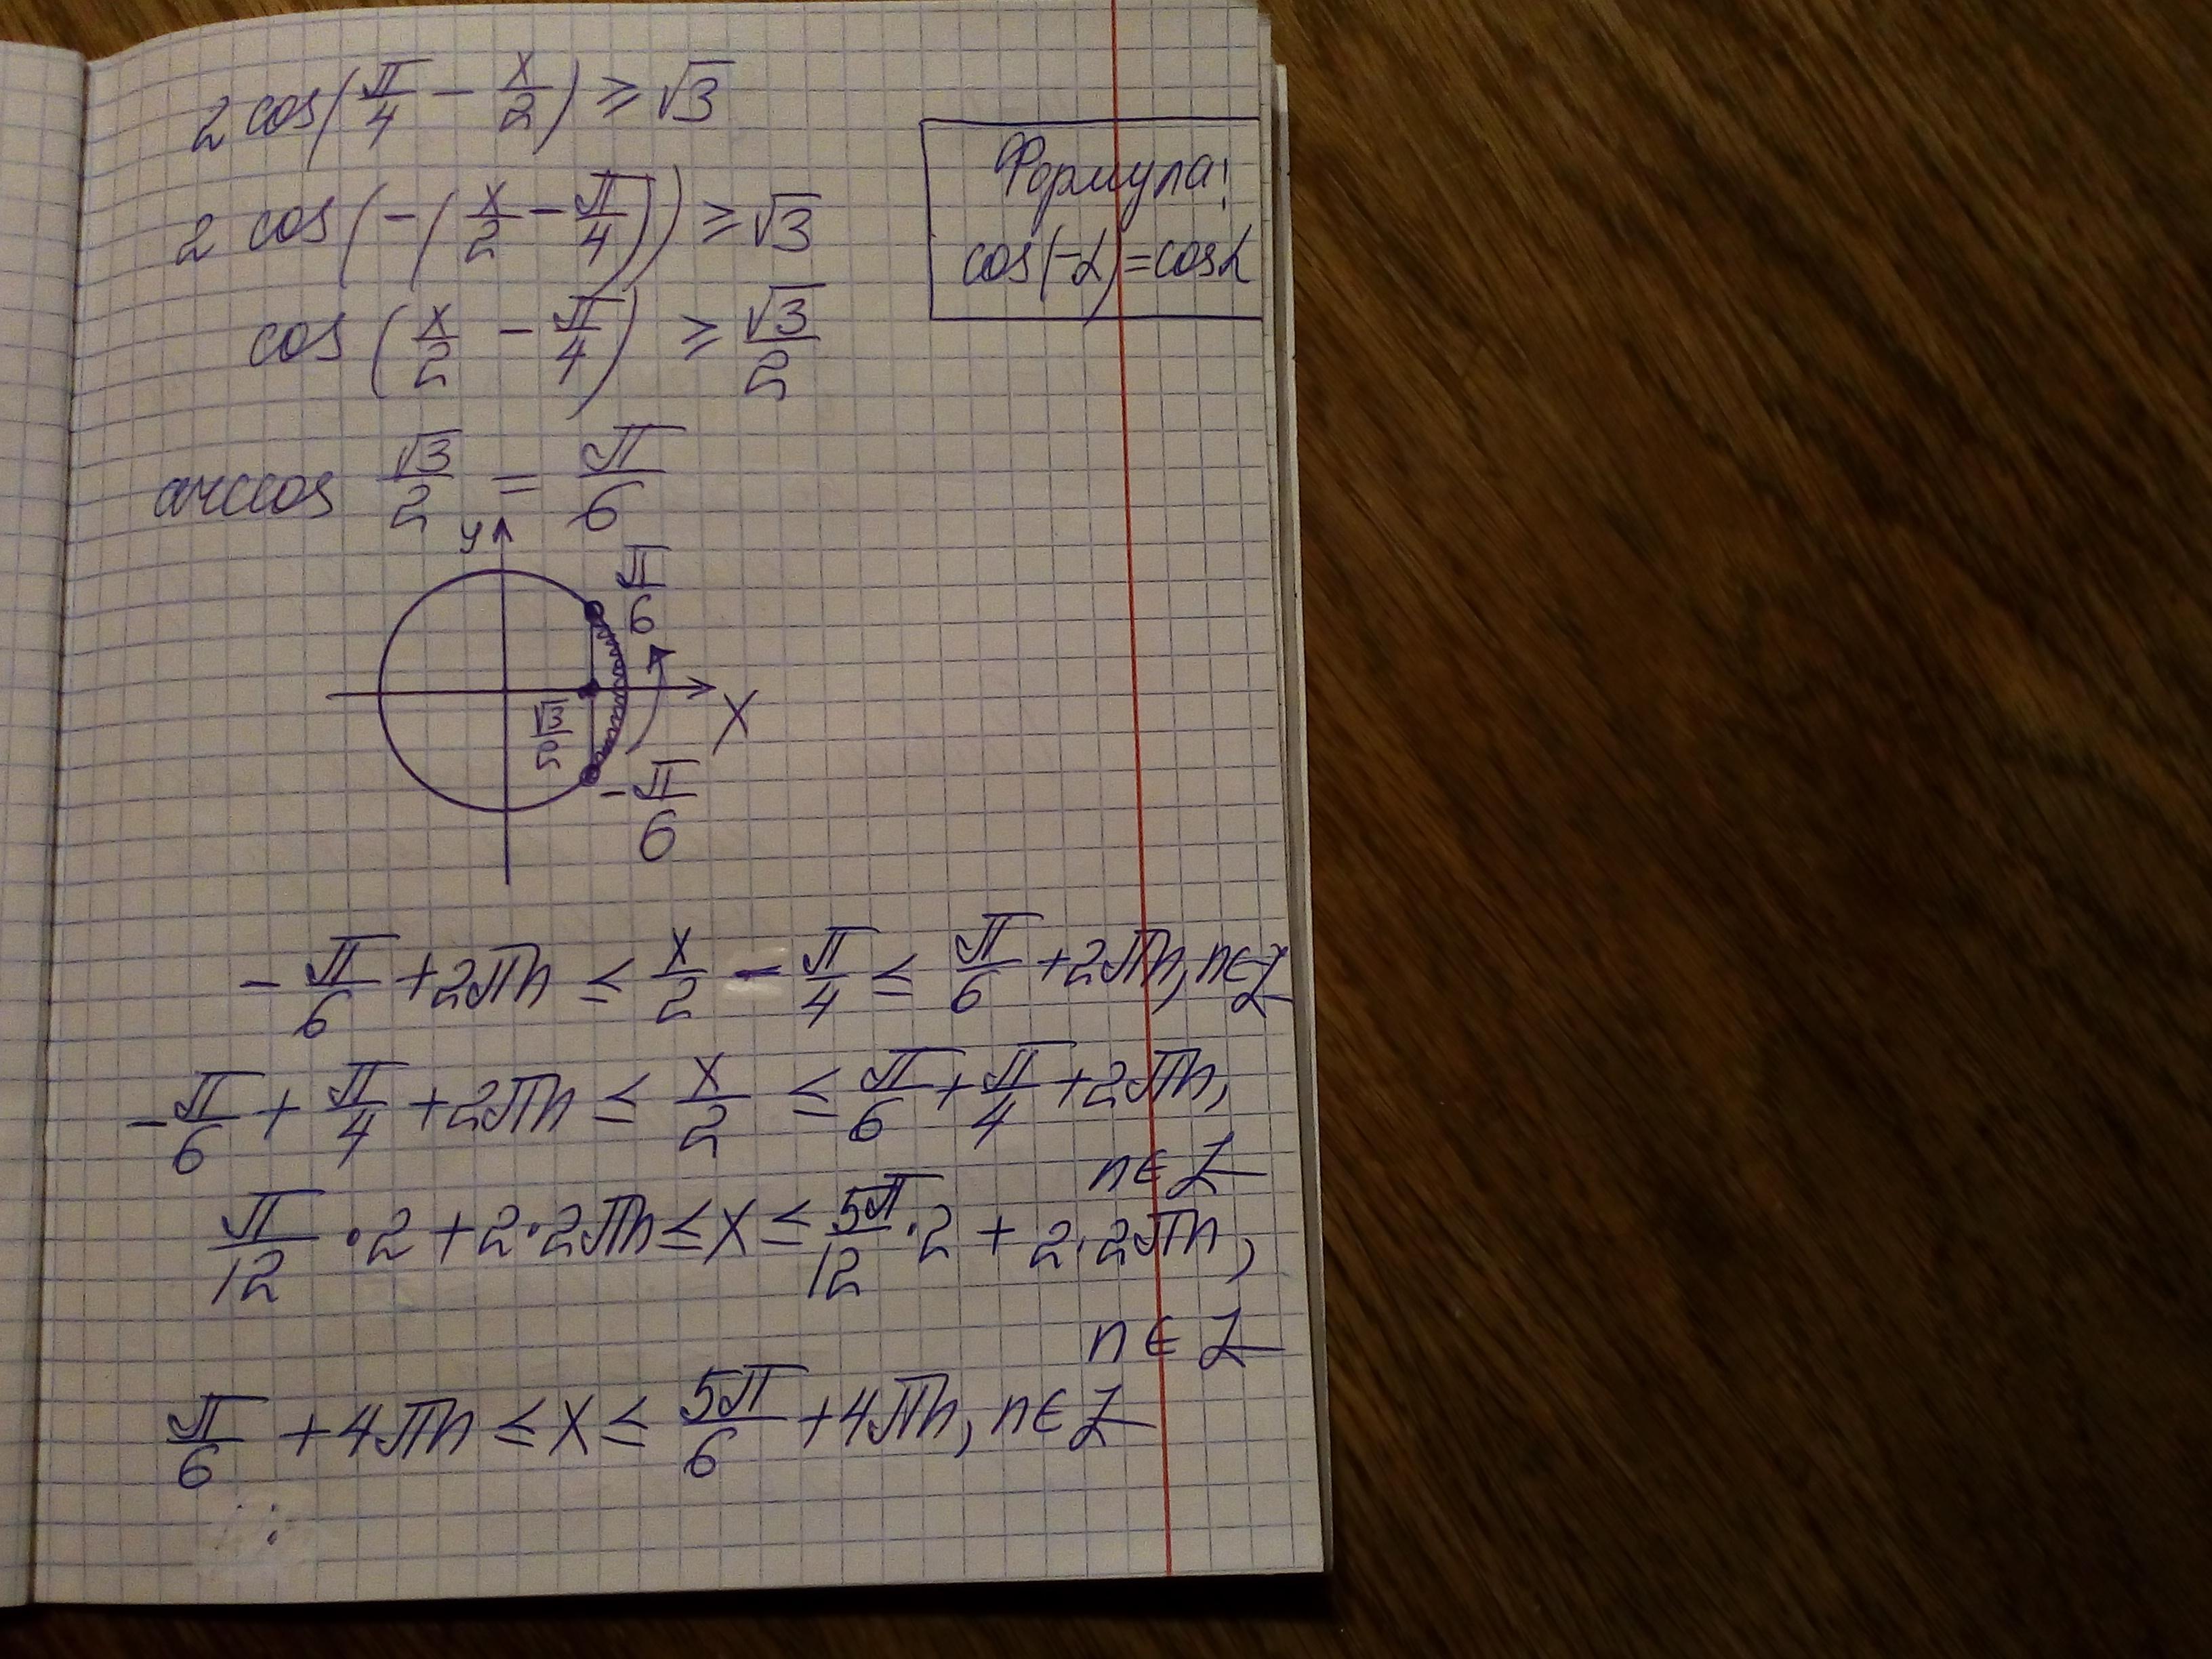 2 cos(π/4 − x/2) ≥ √3
Формула:
cos(−α) = cosα
2 cos(−(x/2 − π/4)) ≥ √3
cos(x/2 − π/4) ≥ √3/2
arccos √3/2 = π/6
y
π/6
√3/2
X
−π/6
−π/6 + 2πn ≤ x/2 − π/4 ≤ π/6 + 2πn, n∈Z
−π/6 + π/4 + 2πn ≤ x/2 ≤ π/6 + π/4 + 2πn,
n∈Z
π/12 · 2 + 2 · 2πn ≤ x ≤ 5π/12 · 2 + 2 · 2πn,
n∈Z
π/6 + 4πn ≤ x ≤ 5π/6 + 4πn, n∈Z